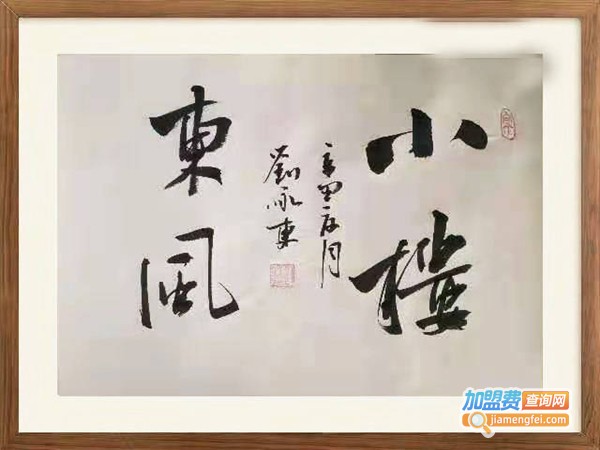 小樓
辛丑月
劉咏東
東風
加盟费查询网
jiamengfei.com